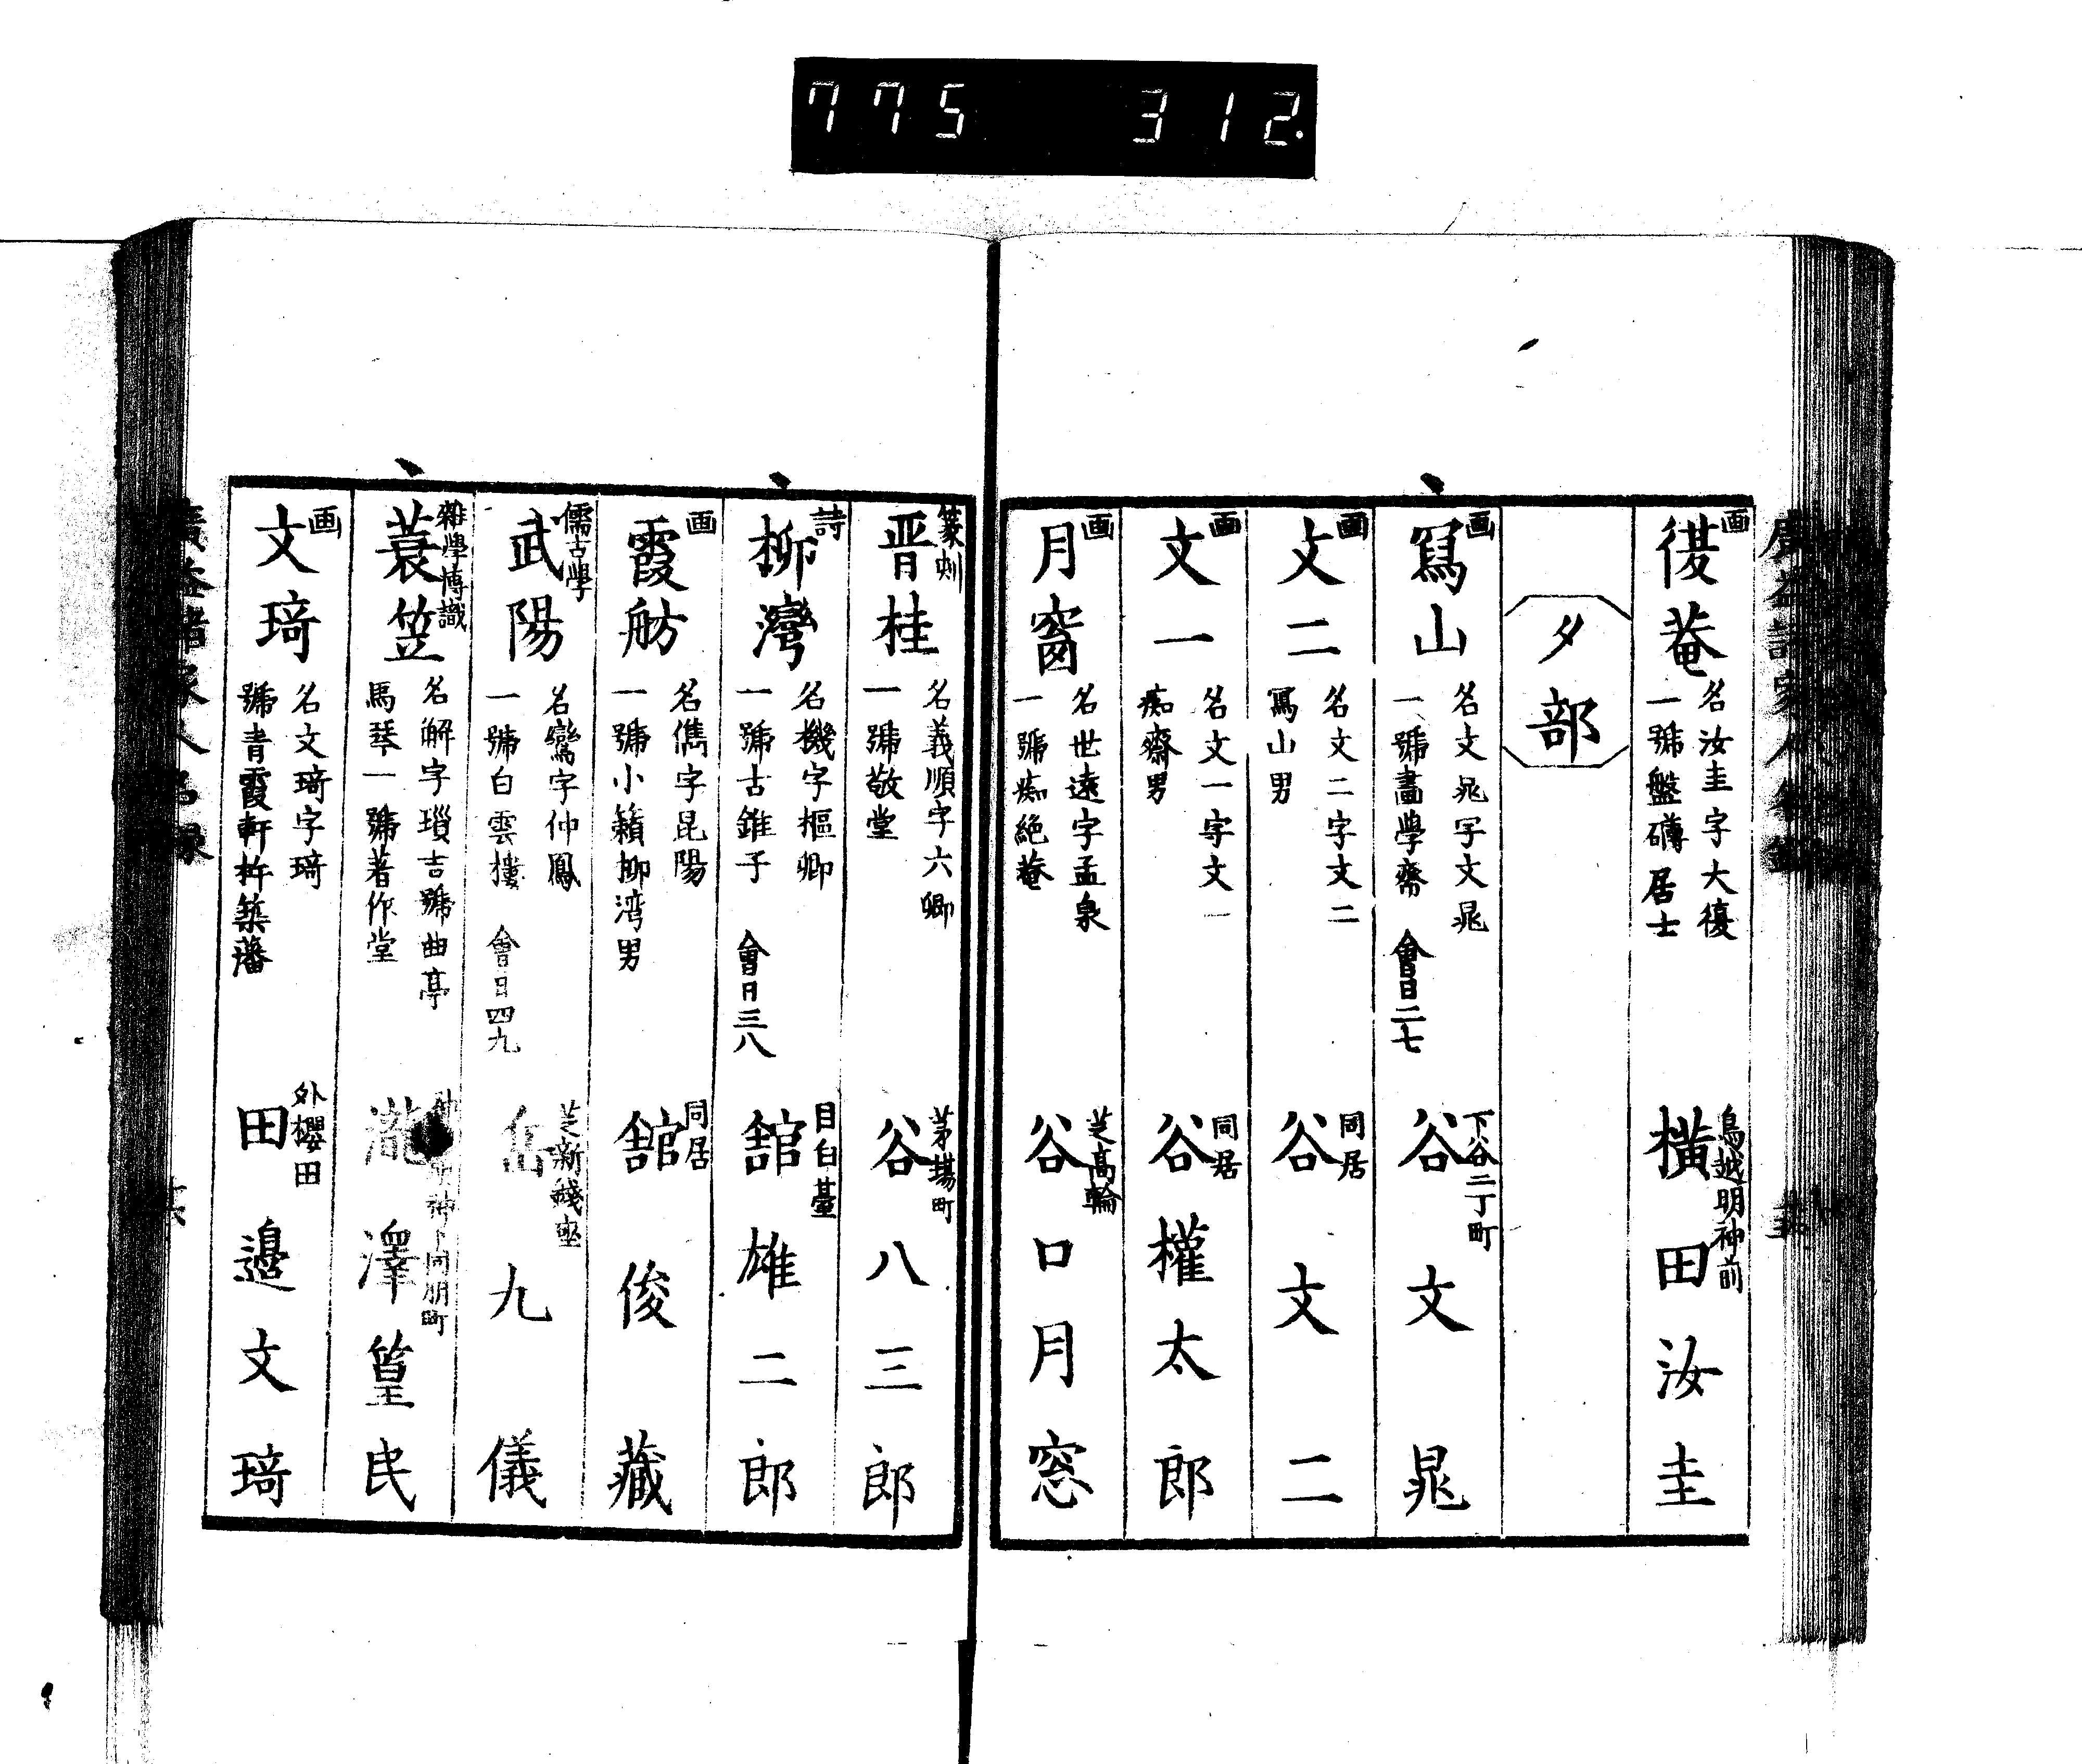 775 312.
画
復菴
名汝圭字大復
一號盤礴居士
鳥越明神前
横田汝圭
タ部
画
寫山
名文晁字文晁
一號畫學齋 會日二七
下谷二丁町
谷文晁
画
文二
名文二字文二
寫山男
同居
谷文二
画
文一
名文一字文一
痴齋男
同居
谷權太郎
画
月窗
名世遠字孟泉
一號痴絶菴
芝高輪
谷口月窓
篆刻
晋桂
名義順字六卿
一號敬堂
茅場町
谷八三郎
詩
柳灣
名機字樞卿
一號古錐子 會日三八
目白臺
舘雄二郎
画
霞舫
名儁字昆陽
一號小籟柳湾男
同居
舘俊藏
儒古學
武陽
名鸞字仲鳳
一號白雲樓 會日四九
芝新錢座
九儀
雜學博識
蓑笠
名解字瑣吉號曲亭
馬琴一號著作堂
同朋町
瀧澤篁民
画
文琦
名文琦字琦
號青霞軒杵築藩
外櫻田
田邉文琦
廣益諸家人名録